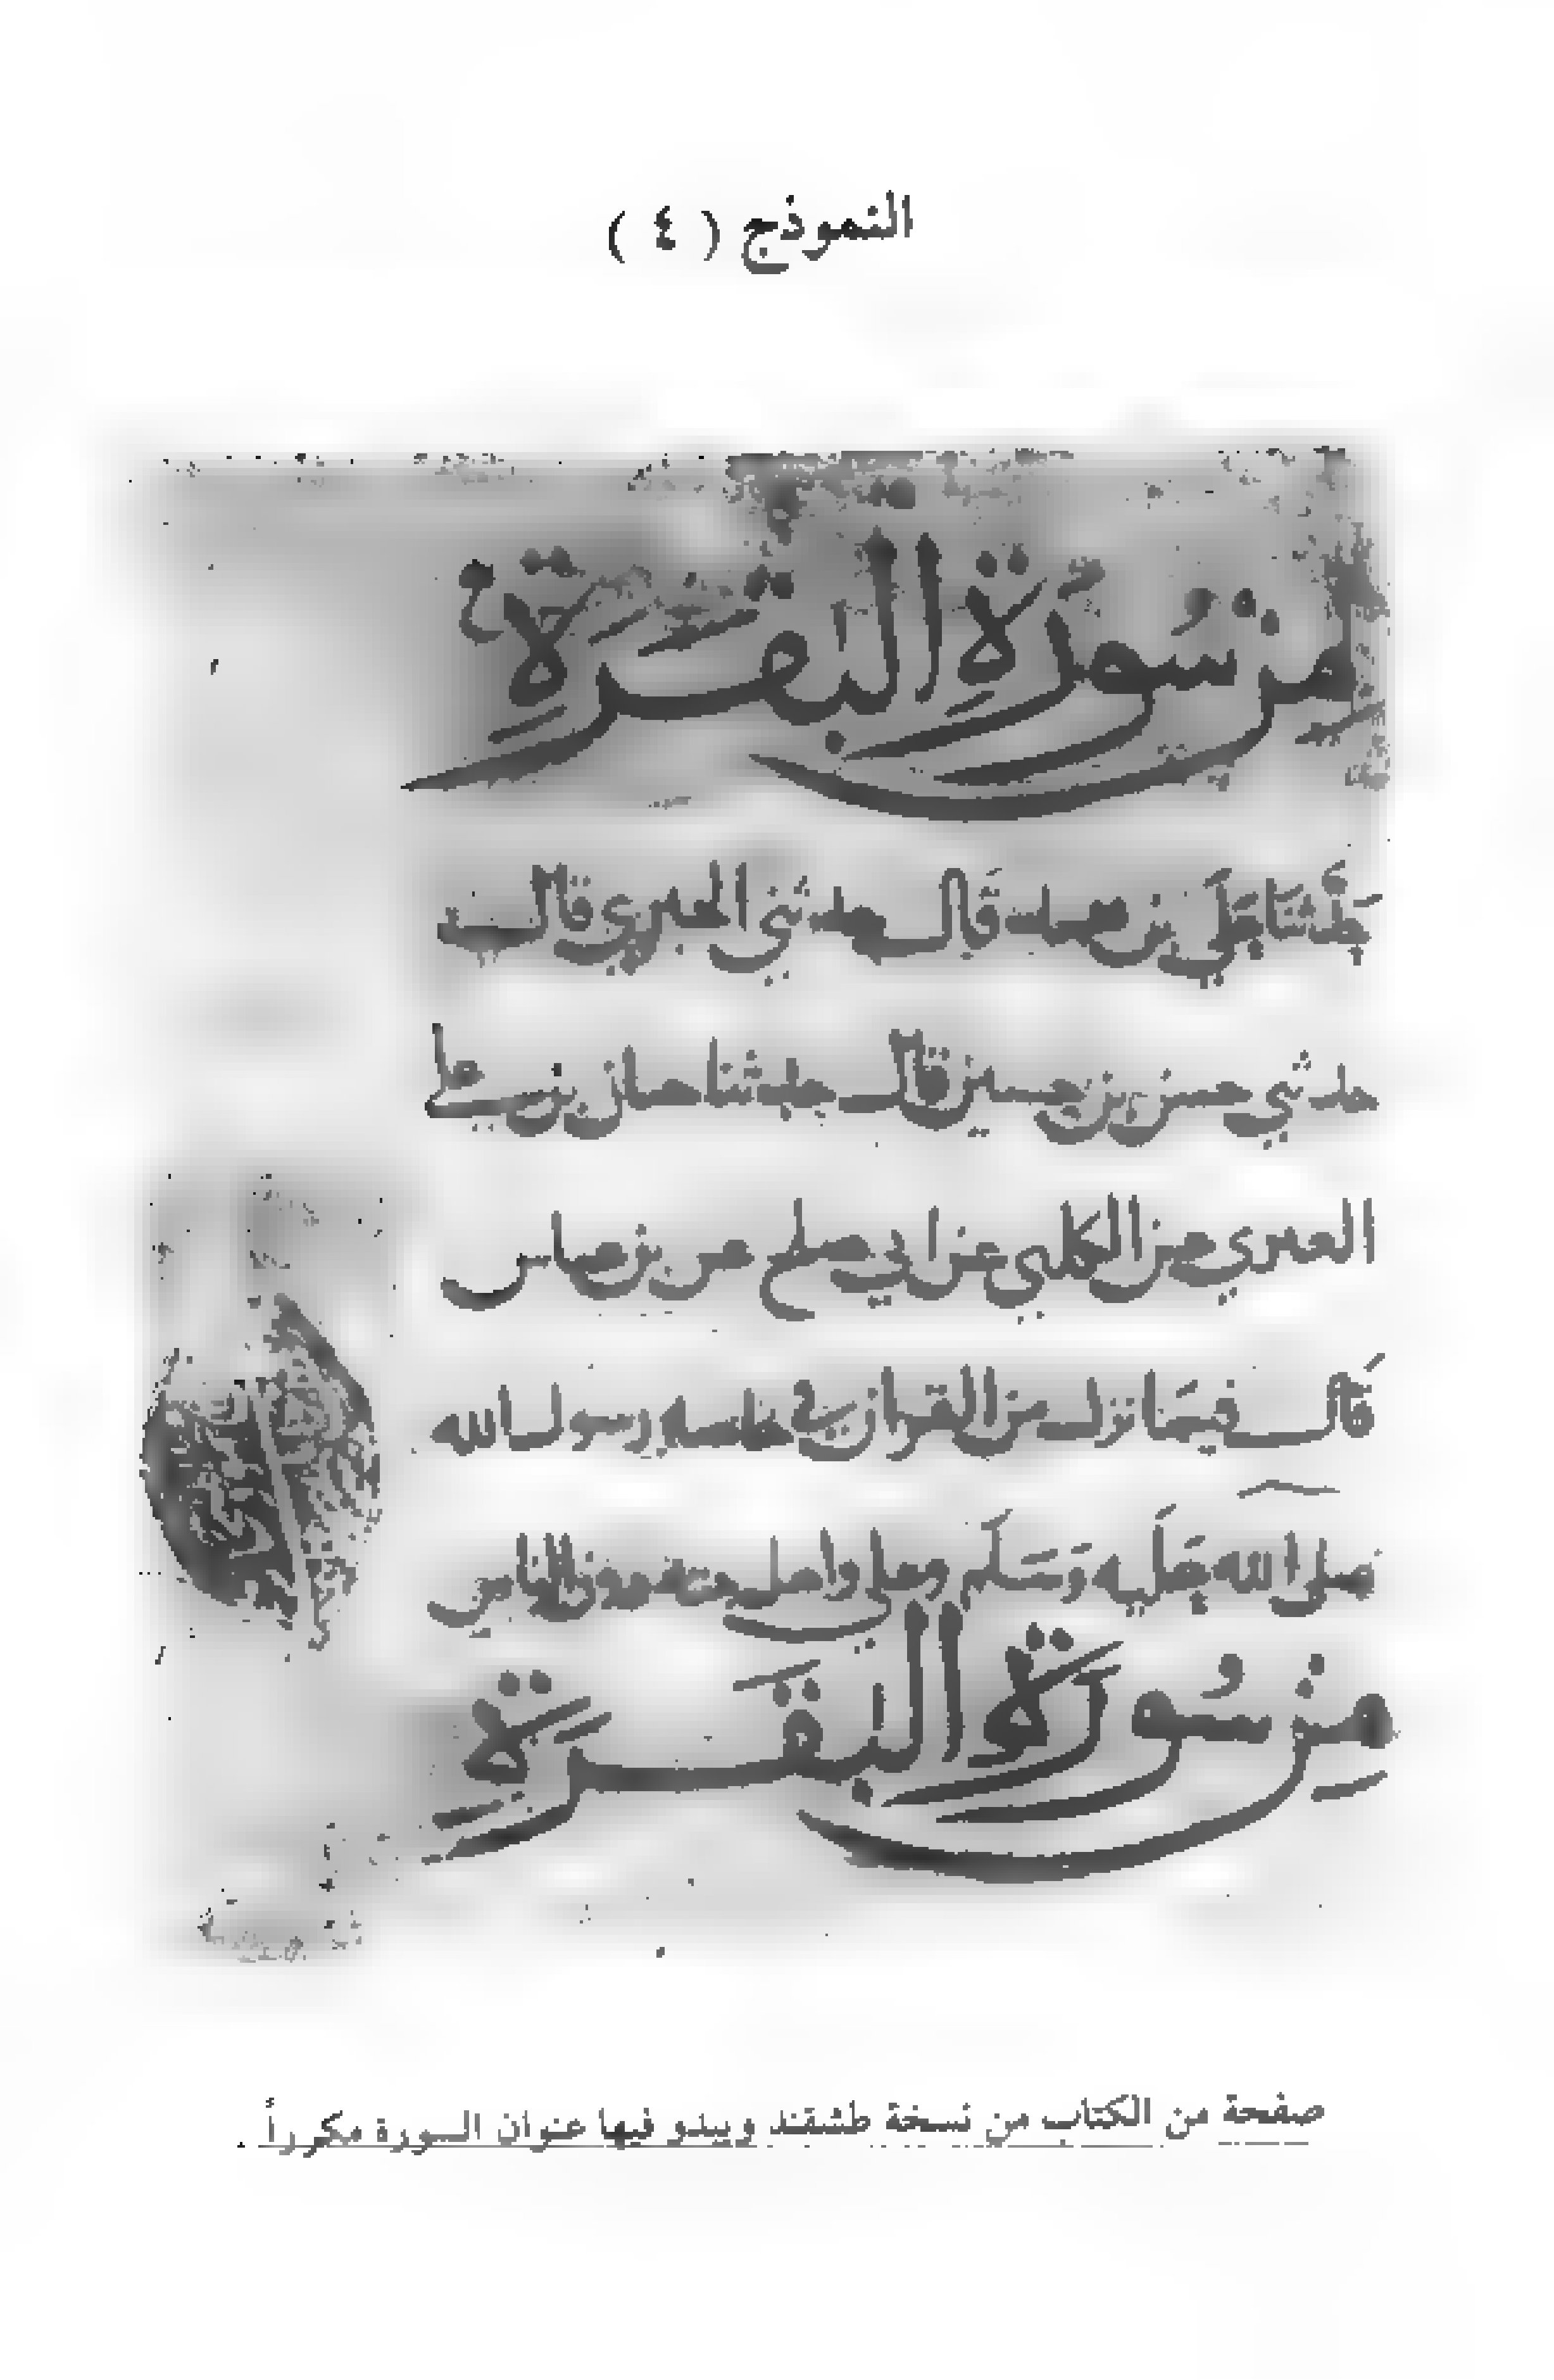 النموذج ( ٤ )
مِنْ سُورَةِ البَقَرَةِ
حَدَّثَنَا عَلِيّ بن محمد قَال حدثني الحبري قال
حدثني حسن بن حسين قال حدثنا حبان بن علي
العنزي عن الكلبي عن ابي صلح عن بن عباس
قَال فيمَا نزل من القران في خاصه رسول الله
صلى الله عَلَيه وَسَلم وعلي واهل بيته دون الناس
مِنْ سُورَةِ البَقَرَةِ
صفحة من الكتاب من نسخة طشقند ويبدو فيها عنوان السورة مكرراً .